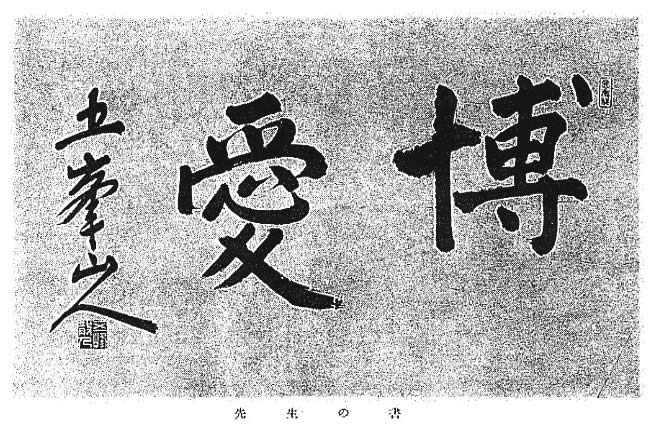 博愛
五峯山人
先生の書